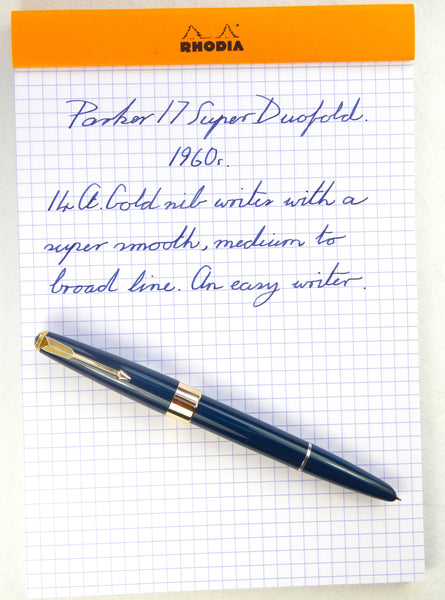 RHODIA
Parker 17 Super Duofold.
1960s.
14ct. Gold nib writes with a
super smooth, medium to
broad line. An easy writer.